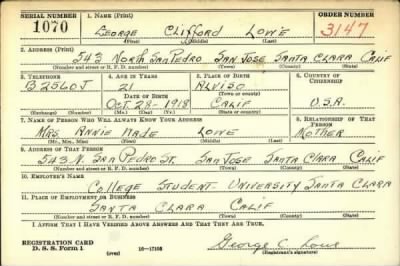 SERIAL NUMBER 1. NAME (Print) ORDER NUMBER
1070 GEORGE CLIFFORD LOWE 3147
(First) (Middle) (Last)
2. ADDRESS (Print)
543 NORTH SAN PEDRO SAN JOSE SANTA CLARA CALIF
(Number and street or R. F. D. number) (Town) (County) (State)
3. TELEPHONE 4. AGE IN YEARS 5. PLACE OF BIRTH 6. COUNTRY OF CITIZENSHIP
B2560J 21 ALVISO
DATE OF BIRTH (Town or county)
OCT. 28- 1918 CALIF U.S.A.
(Exchange) (Number) (Mo.) (Day) (Yr.) (State or country)
7. NAME OF PERSON WHO WILL ALWAYS KNOW YOUR ADDRESS 8. RELATIONSHIP OF THAT PERSON
MRS. ANNIE WADE LOWE MOTHER
(Mr., Mrs., Miss) (First) (Middle) (Last)
9. ADDRESS OF THAT PERSON
543 N. SAN PEDRO ST. SAN JOSE SANTA CLARA CALIF
(Number and street or R. F. D. number) (Town) (County) (State)
10. EMPLOYER'S NAME
COLLEGE STUDENT- UNIVERSITY SANTA CLARA
11. PLACE OF EMPLOYMENT OR BUSINESS
SANTA CLARA CALIF
(Number and street or R. F. D. number) (Town) (County) (State)
I AFFIRM THAT I HAVE VERIFIED ABOVE ANSWERS AND THAT THEY ARE TRUE.
REGISTRATION CARD
D. S. S. Form 1 16-17105 George C. Lowe
(over) (Registrant's signature)